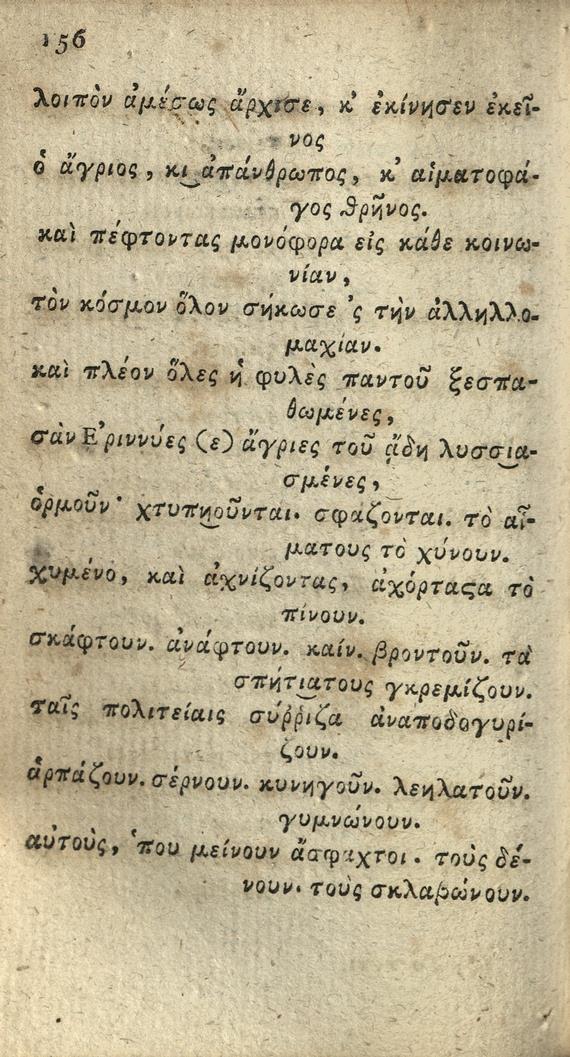 156
λοιπὸν ἀμέσως ἄρχισε, κ᾽ ἐκίνησεν ἐκεῖ-
νος
ὁ ἄγριος, κι ἀπάνθρωπος, κ᾽ αἱματοφά-
γος θρῆνος.
καὶ πέφτοντας μονόφορα εἰς κάθε κοινω-
νίαν,
τὸν κόσμον ὅλον σήκωσε ᾽ς τὴν ἀλληλλο-
μαχίαν.
καὶ πλέον ὅλες ἡ φυλὲς παντοῦ ξεσπα-
θωμένες,
σὰν Ἐριννύες (ε) ἄγριες τοῦ ᾅδη λυσσια-
σμένες,
ὁρμοῦν· χτυπηοῦνται. σφαζονται. τὸ αἷ-
ματους τὸ χύνουν.
χυμένο, καὶ ἀχνίζοντας, ἀχόρταςα τὸ
πίνουν.
σκάφτουν. ἀνάφτουν. καίν. βροντοῦν. τὰ
σπήτιατους γκρεμίζουν.
ταῖς πολιτείαις σύῤῥιζα ἀναποδογυρί-
ζουν.
ἁρπάζουν. σέρνουν. κυνηγοῦν. λεηλατοῦν.
γυμνώνουν.
αὐτοὺς, ῾που μείνουν ἄσφαχτοι. τοὺς δέ-
νουν. τοὺς σκλαβώνουν.